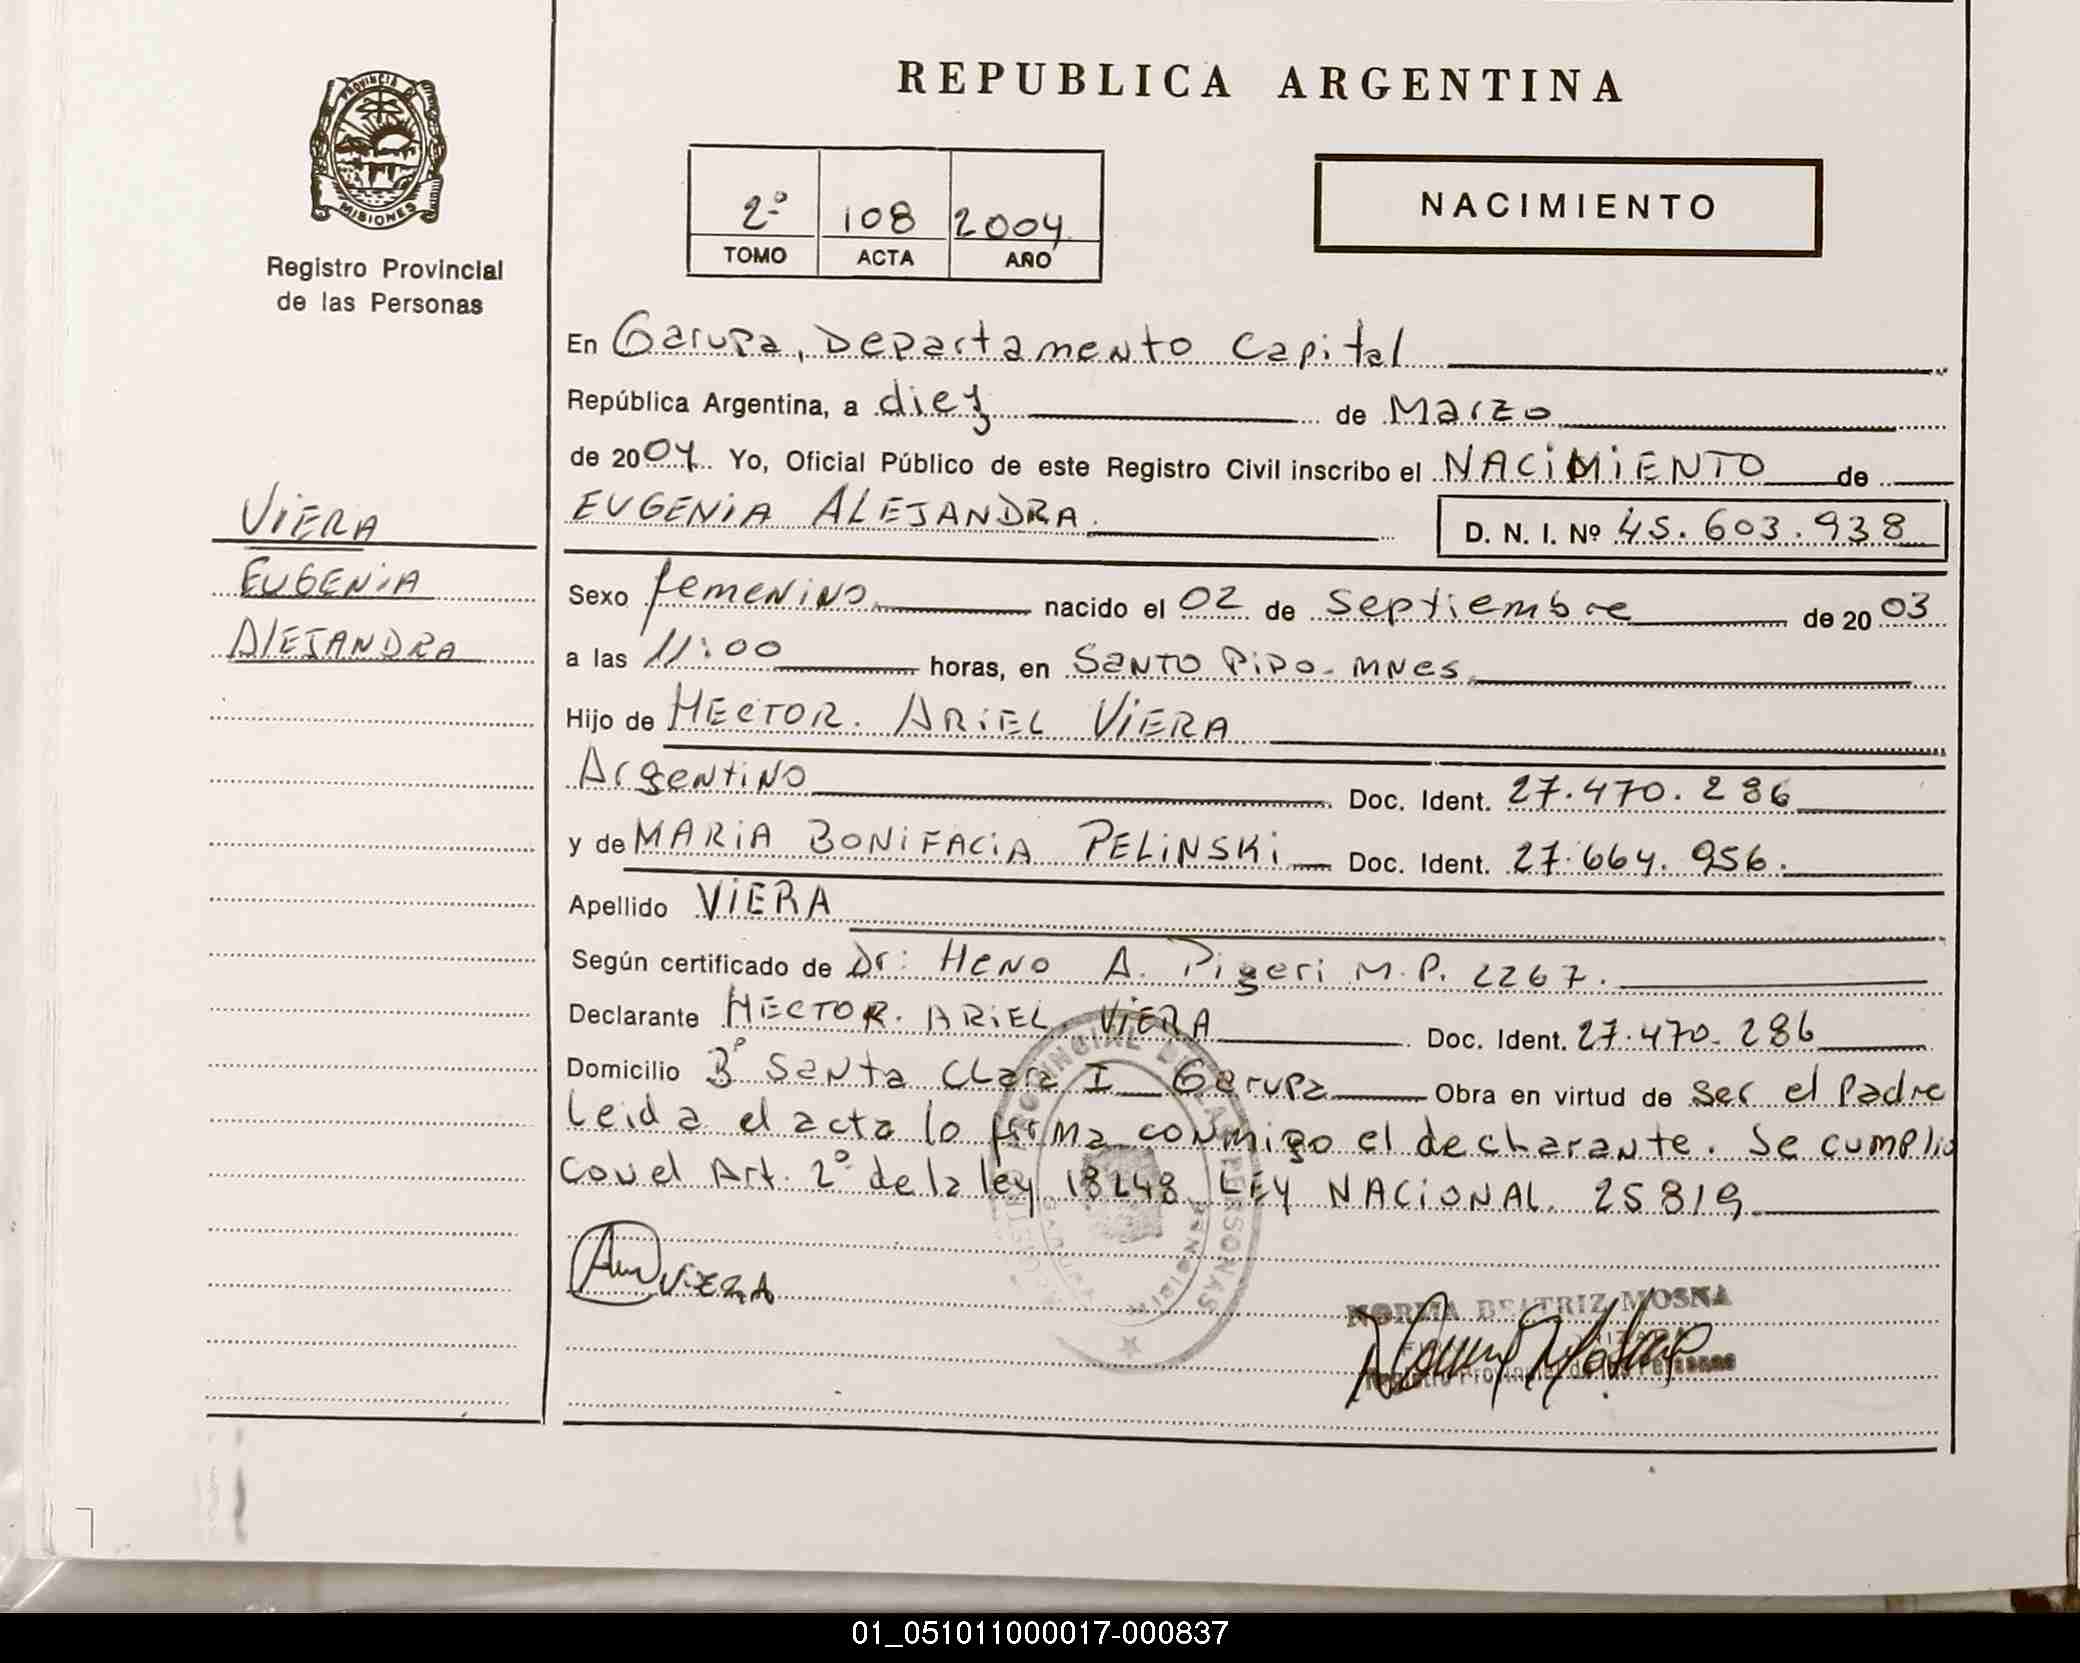 REPUBLICA ARGENTINA
PROVINCIA DE
MISIONES
Registro Provincial
de las Personas
2º 108 2004
TOMO ACTA AÑO
NACIMIENTO
En Garupa, Departamento Capital
República Argentina, a diez de Marzo
de 2004. Yo, Oficial Público de este Registro Civil inscribo el NACIMIENTO de
EUGENIA ALEJANDRA. D. N. I. Nº 45.603.938
VIERA
EUGENIA
ALEJANDRA
Sexo femenino nacido el 02 de Septiembre de 2003
a las 11:00 horas, en SANTO PIPO - MNES.
Hijo de HECTOR. ARIEL VIERA
Argentino Doc. Ident. 27.470.286
y de MARIA BONIFACIA PELINSKI Doc. Ident. 27.664.956.
Apellido VIERA
Según certificado de Dr: Heno A. Pigeri M.P. 2267.
Declarante HECTOR. ARIEL. VIERA Doc. Ident. 27.470.286
Domicilio Bº Santa Clara I Garupa Obra en virtud de ser el padre
Leida el acta lo firma conmigo el decharante. Se cumplio
con el Art. 2º de la ley 18248 LEY NACIONAL. 25819
REGISTRO PROVINCIAL DE LAS PERSONAS
GARUPA MISIONES
VIERA
NORMA BEATRIZ MOSNA
Registro Provincial de las Personas
01_051011000017-000837